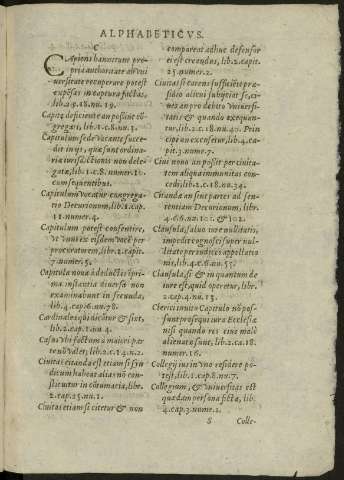 ALPHABETICVS.
C
Capiens bannitum pro
pria authoritate ab vni
uersitate recuperare potest
expensas in captura factas,
lib.4.9.18.nu.19.
Capitulum sede vacante succe
dit in ijs, quæ sunt ordina
riæ iurisdictionis non dele
gatæ, lib.1.c.8.numer.10.
cum sequentibus.
Capitulum vocatur congregatio
Decurionum, lib.2.cap.
11.numer.4.
Capitulum potest consentire,
vt vnus ex eisdem vocet per
procuratorem, lib.2.capit.
7.numer.5.
Capitula noua à deductis i pri
ma instantia diuersa non
examinabunt in secunda,
lib.4.cap.16.nu.78.
Cardinales qui dicãtur & sint,
lib.2.cap.1.nu.4.
Casus vbi factum à maiori par
te nõ valet, lib.2.c.14.n.2.
Ciuitas citanda est etiam si syn
dicum habeat alias nõ con
stituitur in cõtumacia, libr.
2.cap.25.nu.1.
Ciuitas etiam si citetur & non
compareat adhuc defensor
ei est creandus, lib.2.capit.
25.numer.2.
Ciuitas si carens sufficiẽti præ
sidio alicui subijciat se, ci-
ues an pro debito Vniuersi-
tatis & quando exequan-
tur, lib.2.c.18.nu.40. Prin
cipe an excusetur, lib.4.ca
pit.3.nume.7.
Ciui nono an possit per ciuita-
tem aliqua immunitas con-
cedi, lib.2.c.18.nu.34.
Citandæ an sint partes ad sen-
tentiam Decurionum, libr.
4.c.6.nu.101. & 102.
Clausula, saluo iure nullitatis,
impedit cognosci super nul-
litate per iudices appellatio
nis, lib.4.c.6.nu.55.
Clausula, si & in quantum de
iure est, quid operetur, libr.
2.cap.4.nu.13.
Clerici inuito Capitulo nõ pos-
sunt prosequi iura Ecclesiæ
nisi quando res eius malè
alienatæ sunt, lib.2.ca.18.
numer.16.
Collegij ius in vno residere po-
test, lib.1.cap.8.nu.7.
Collegium, & vniuersitas est
quædam persona ficta, lib.
4.cap.3.nume.2.
S Colle-